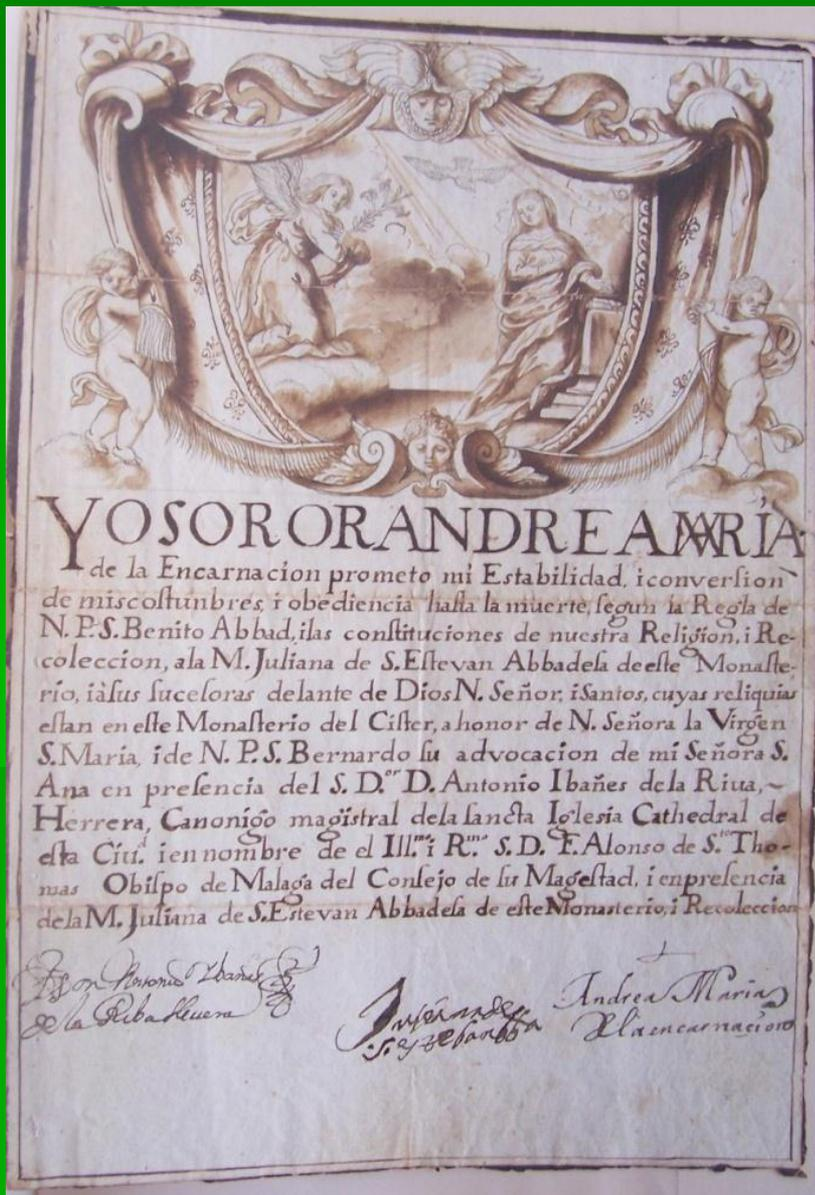 YO SOROR ANDREA MARÍA
de la Encarnacion prometo mi Estabilidad, i conversion
de mis costunbres, i obediencia hasta la muerte, segun la Regla de
N. P. S. Benito Abbad, i las constituciones de nuestra Religion, i Re-
coleccion, a la M. Juliana de S. Estevan Abbadesa de este Monaste-
rio, i à sus sucesoras delante de Dios N. Señor, i Santos, cuyas reliquias
estan en este Monasterio del Cister, a honor de N. Señora la Virgen
S. Maria, i de N. P. S. Bernardo su advocacion de mi Señora S.
Ana en presencia del S. D.or D. Antonio Ibañes de la Riua,~
Herrera, Canonigo magistral de la sancta Iglesia Cathedral de
esta Ciu.d i en nombre de el Ill.mo i R.mo S. D. F. Alonso de S.to Tho-
mas Obispo de Malaga del Consejo de su Magestad, i en presencia
de la M. Juliana de S. Estevan Abbadesa de este Monasterio, i Recoleccion
Don Antonio Ybañes
de la Riba Herrera
Andrea Maria
de la encarnacion